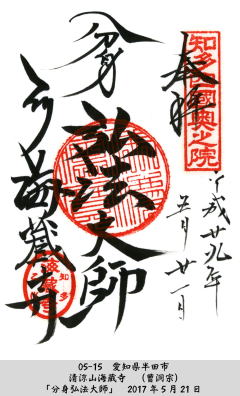 奉拝
知多四国奥之院
平成廿九年
五月廿一日
分身
弘法大師
海蔵寺
05-15 愛知県半田市
清涼山海蔵寺 (曹洞宗)
「分身弘法大師」 2017年5月21日